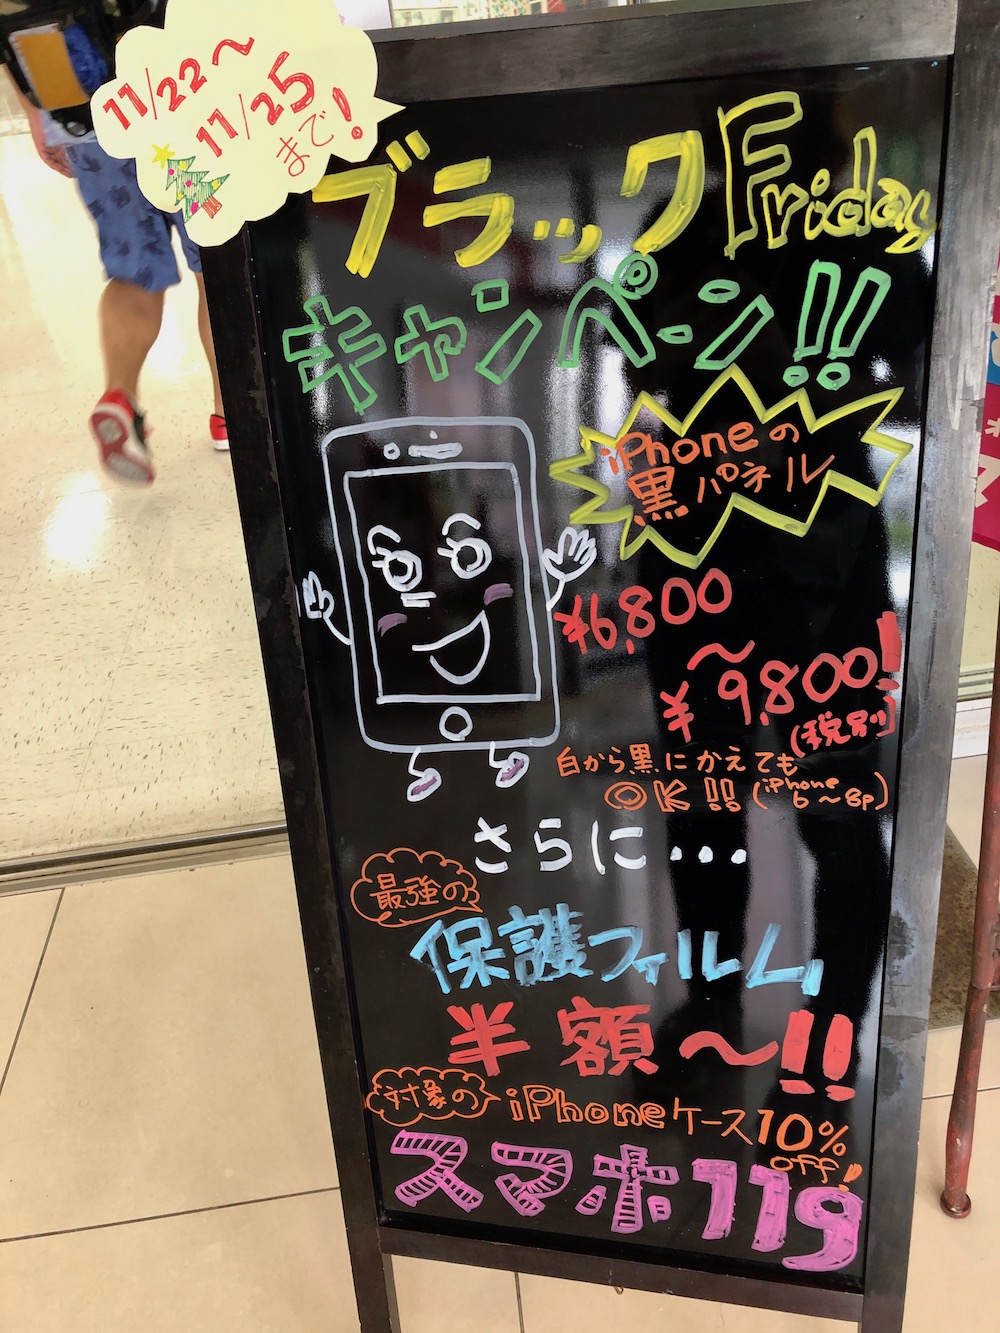 11/22〜
11/25
まで！
ブラックFriday
キャンペーン!!
iPhoneの
黒パネル
¥6,800
〜
¥9,800!
(税別)
白から黒にかえても
OK!!(iPhone
6〜8p)
さらに...
最強の
保護フィルム
半額〜!!
対象のiPhoneケース10%
off!
スマホ119